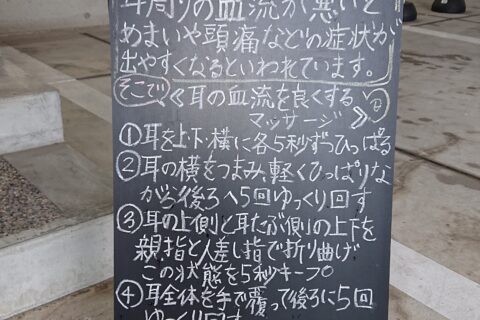 耳周りの血流が悪いと
めまいや頭痛などの症状が
出やすくなるといわれています。
そこで 《耳の血流を良くする
マッサージ》
①耳を上・下・横に各5秒ずつひっぱる
②耳の横をつまみ、軽くひっぱりな
がら後ろへ5回ゆっくり回す
③耳の上側と耳たぶ側の上下を
親指と人差し指で折り曲げ
この状態を5秒キープ
④耳全体を手で覆って後ろに5回
ゆっくり回す